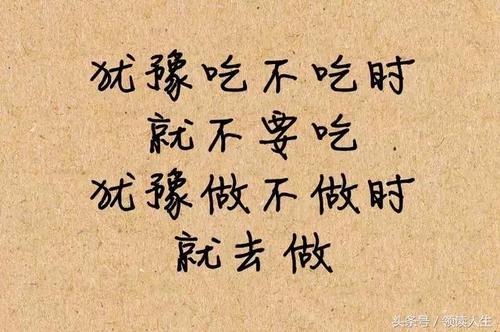 犹豫吃不吃时
就不要吃
犹豫做不做时
就去做
头条号／领读人生